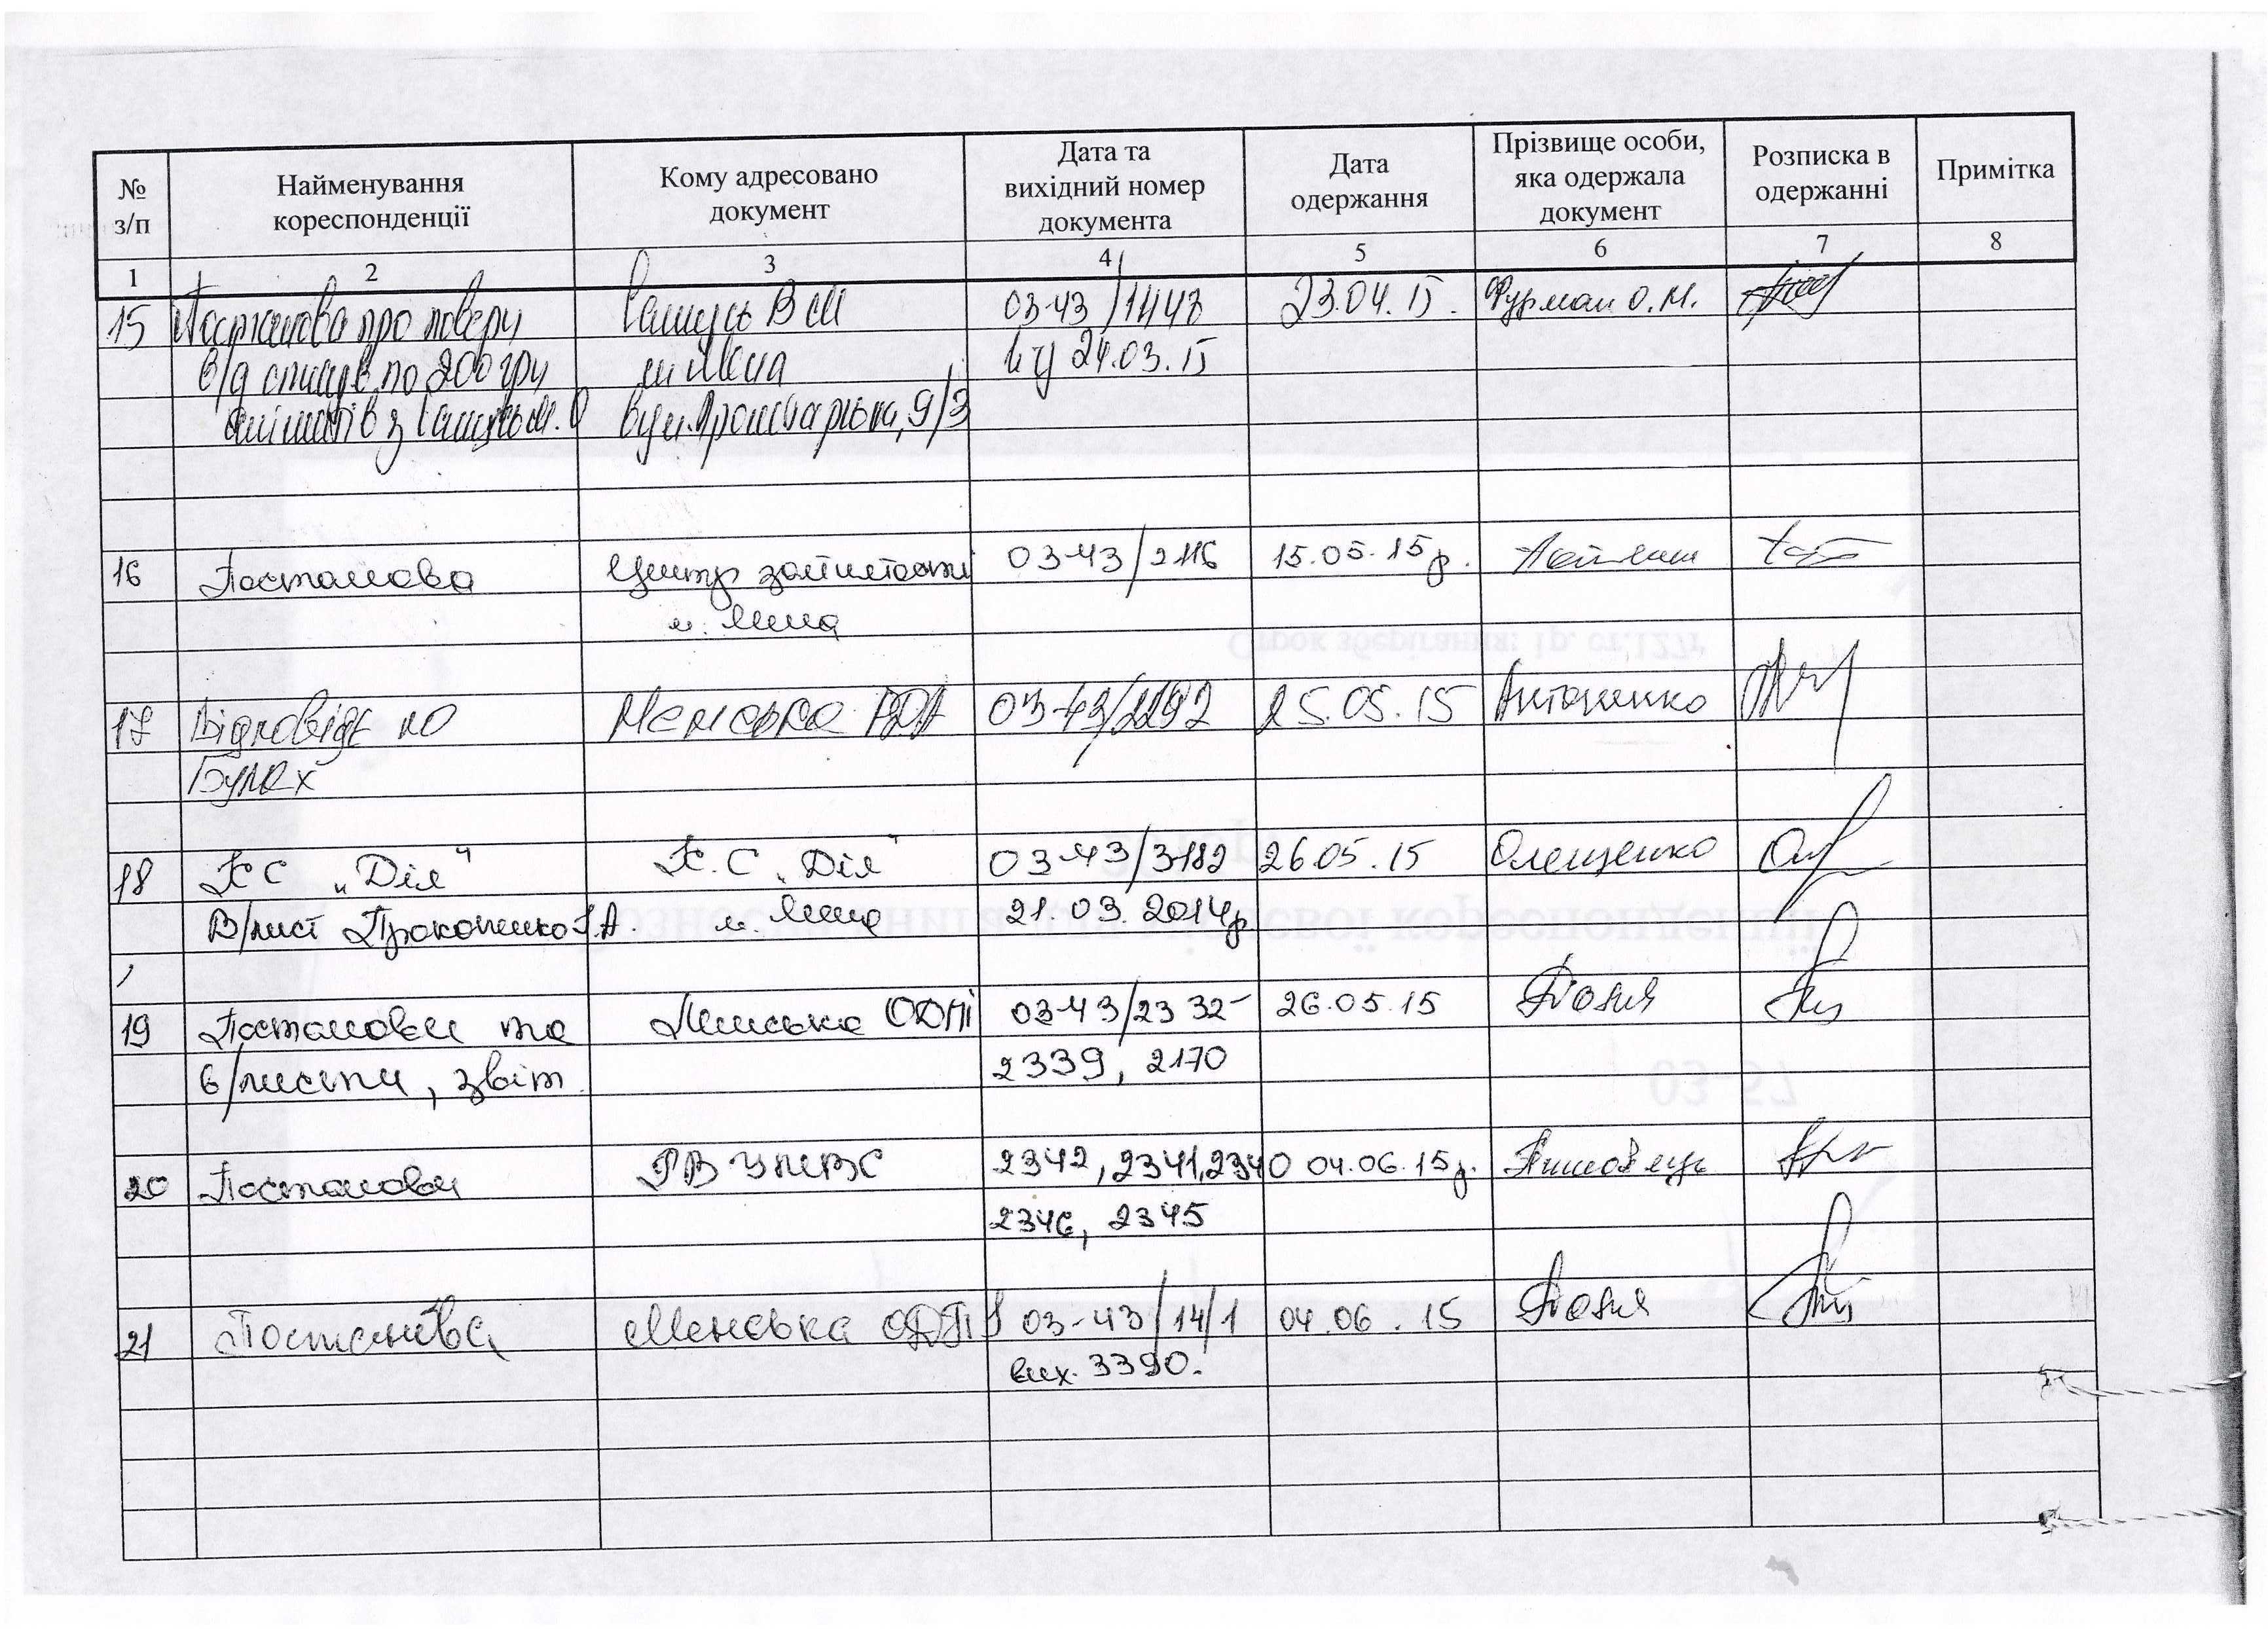 № з/п
Найменування кореспонденції
Кому адресовано документ
Дата та вихідний номер документа
Дата одержання
Прізвище особи, яка одержала документ
Розписка в одержанні
Примітка
1 2 3 4 5 6 7 8
15 Постанова про поверн 03-43/1448 23.04.15. Фурман О.М.
по 200 грн м Мена 24.03.15
вул. 9/3
16 Постанова Центр зайнятості 03-43/2116 15.05.15р.
м. Мена
17 Відповідь по Менська РДА 03-43/2292 25.05.15 Антоненко
Булах
18 КС „Дія" К.С „Дія" 03-43/3182 26.05.15 Олещенко
В/лист Прокопенко І.А. м. Мена 21.03.2014р
19 Постанови та Менська ОДПІ 03-43/2332- 26.05.15
в/листи, звіт. 2339, 2170
20 Постанови РВ УМВС 2342, 2341, 2340 04.06.15р.
2346, 2345
21 Постанова Менська ОДПІ 03-43/14/1 04.06.15
вих. 3390.
Строк зберігання: 1р. ст.127г
03-57